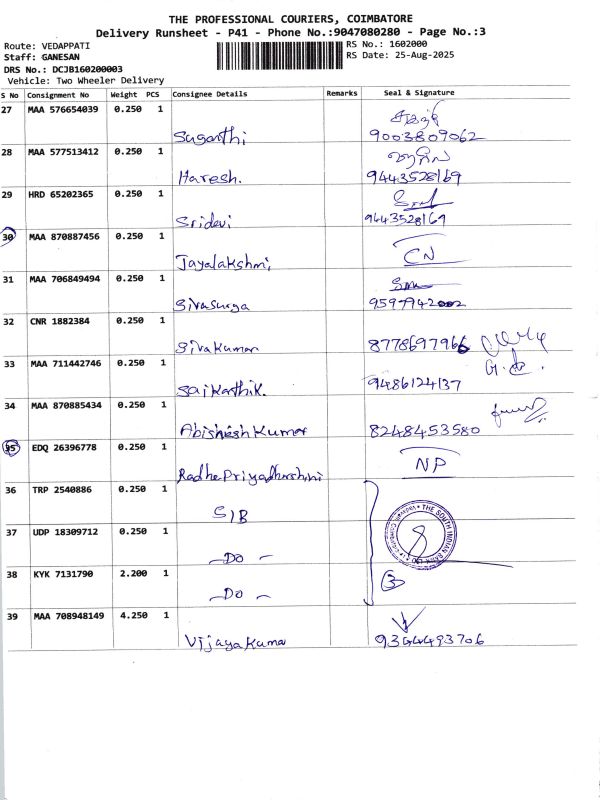 THE PROFESSIONAL COURIERS, COIMBATORE
Delivery Runsheet - P41 - Phone No.:9047080280 - Page No.:3
Route: VEDAPPATI
RS No.: 1602000
Staff: GANESAN
RS Date: 25-Aug-2025
DRS No.: DCJB160200003
Vehicle: Two Wheeler Delivery
S No Consignment No Weight PCS Consignee Details Remarks Seal & Signature
27 MAA 576654039 0.250 1 Suganthi 9003809062
28 MAA 577513412 0.250 1 Haresh. 9443528169
29 HRD 65202365 0.250 1 Sridevi 9443528169
30 MAA 870887456 0.250 1 Jayalakshmi CN
31 MAA 706849494 0.250 1 Sivasurya 9597942002
32 CNR 1882384 0.250 1 Sivakumar 8778697966
33 MAA 711442746 0.250 1 Saikarthik. 9486124137
34 MAA 870885434 0.250 1 Abishesh Kumar 8248453580
35 EDQ 26396778 0.250 1 Radhe Priyadharshini NP
36 TRP 2540886 0.250 1 SIB
THE SOUTH INDIAN BANK LTD
37 UDP 18309712 0.250 1 -Do-
38 KYK 7131790 2.200 1 -Do- 3
39 MAA 708948149 4.250 1 Vijaya Kumar 9364493706